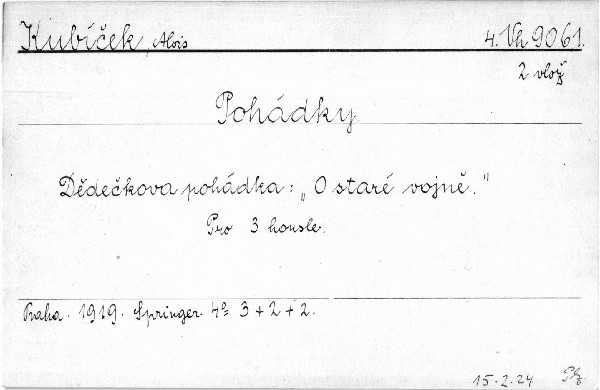 Kubíček, Alois 4. Vh 9061.
2 vlož
Pohádky
Dědečkova pohádka: „O staré vojně."
Pro 3 housle.
Praha. 1919. Springer. 4º 3 + 2 + 2.
15-2-24